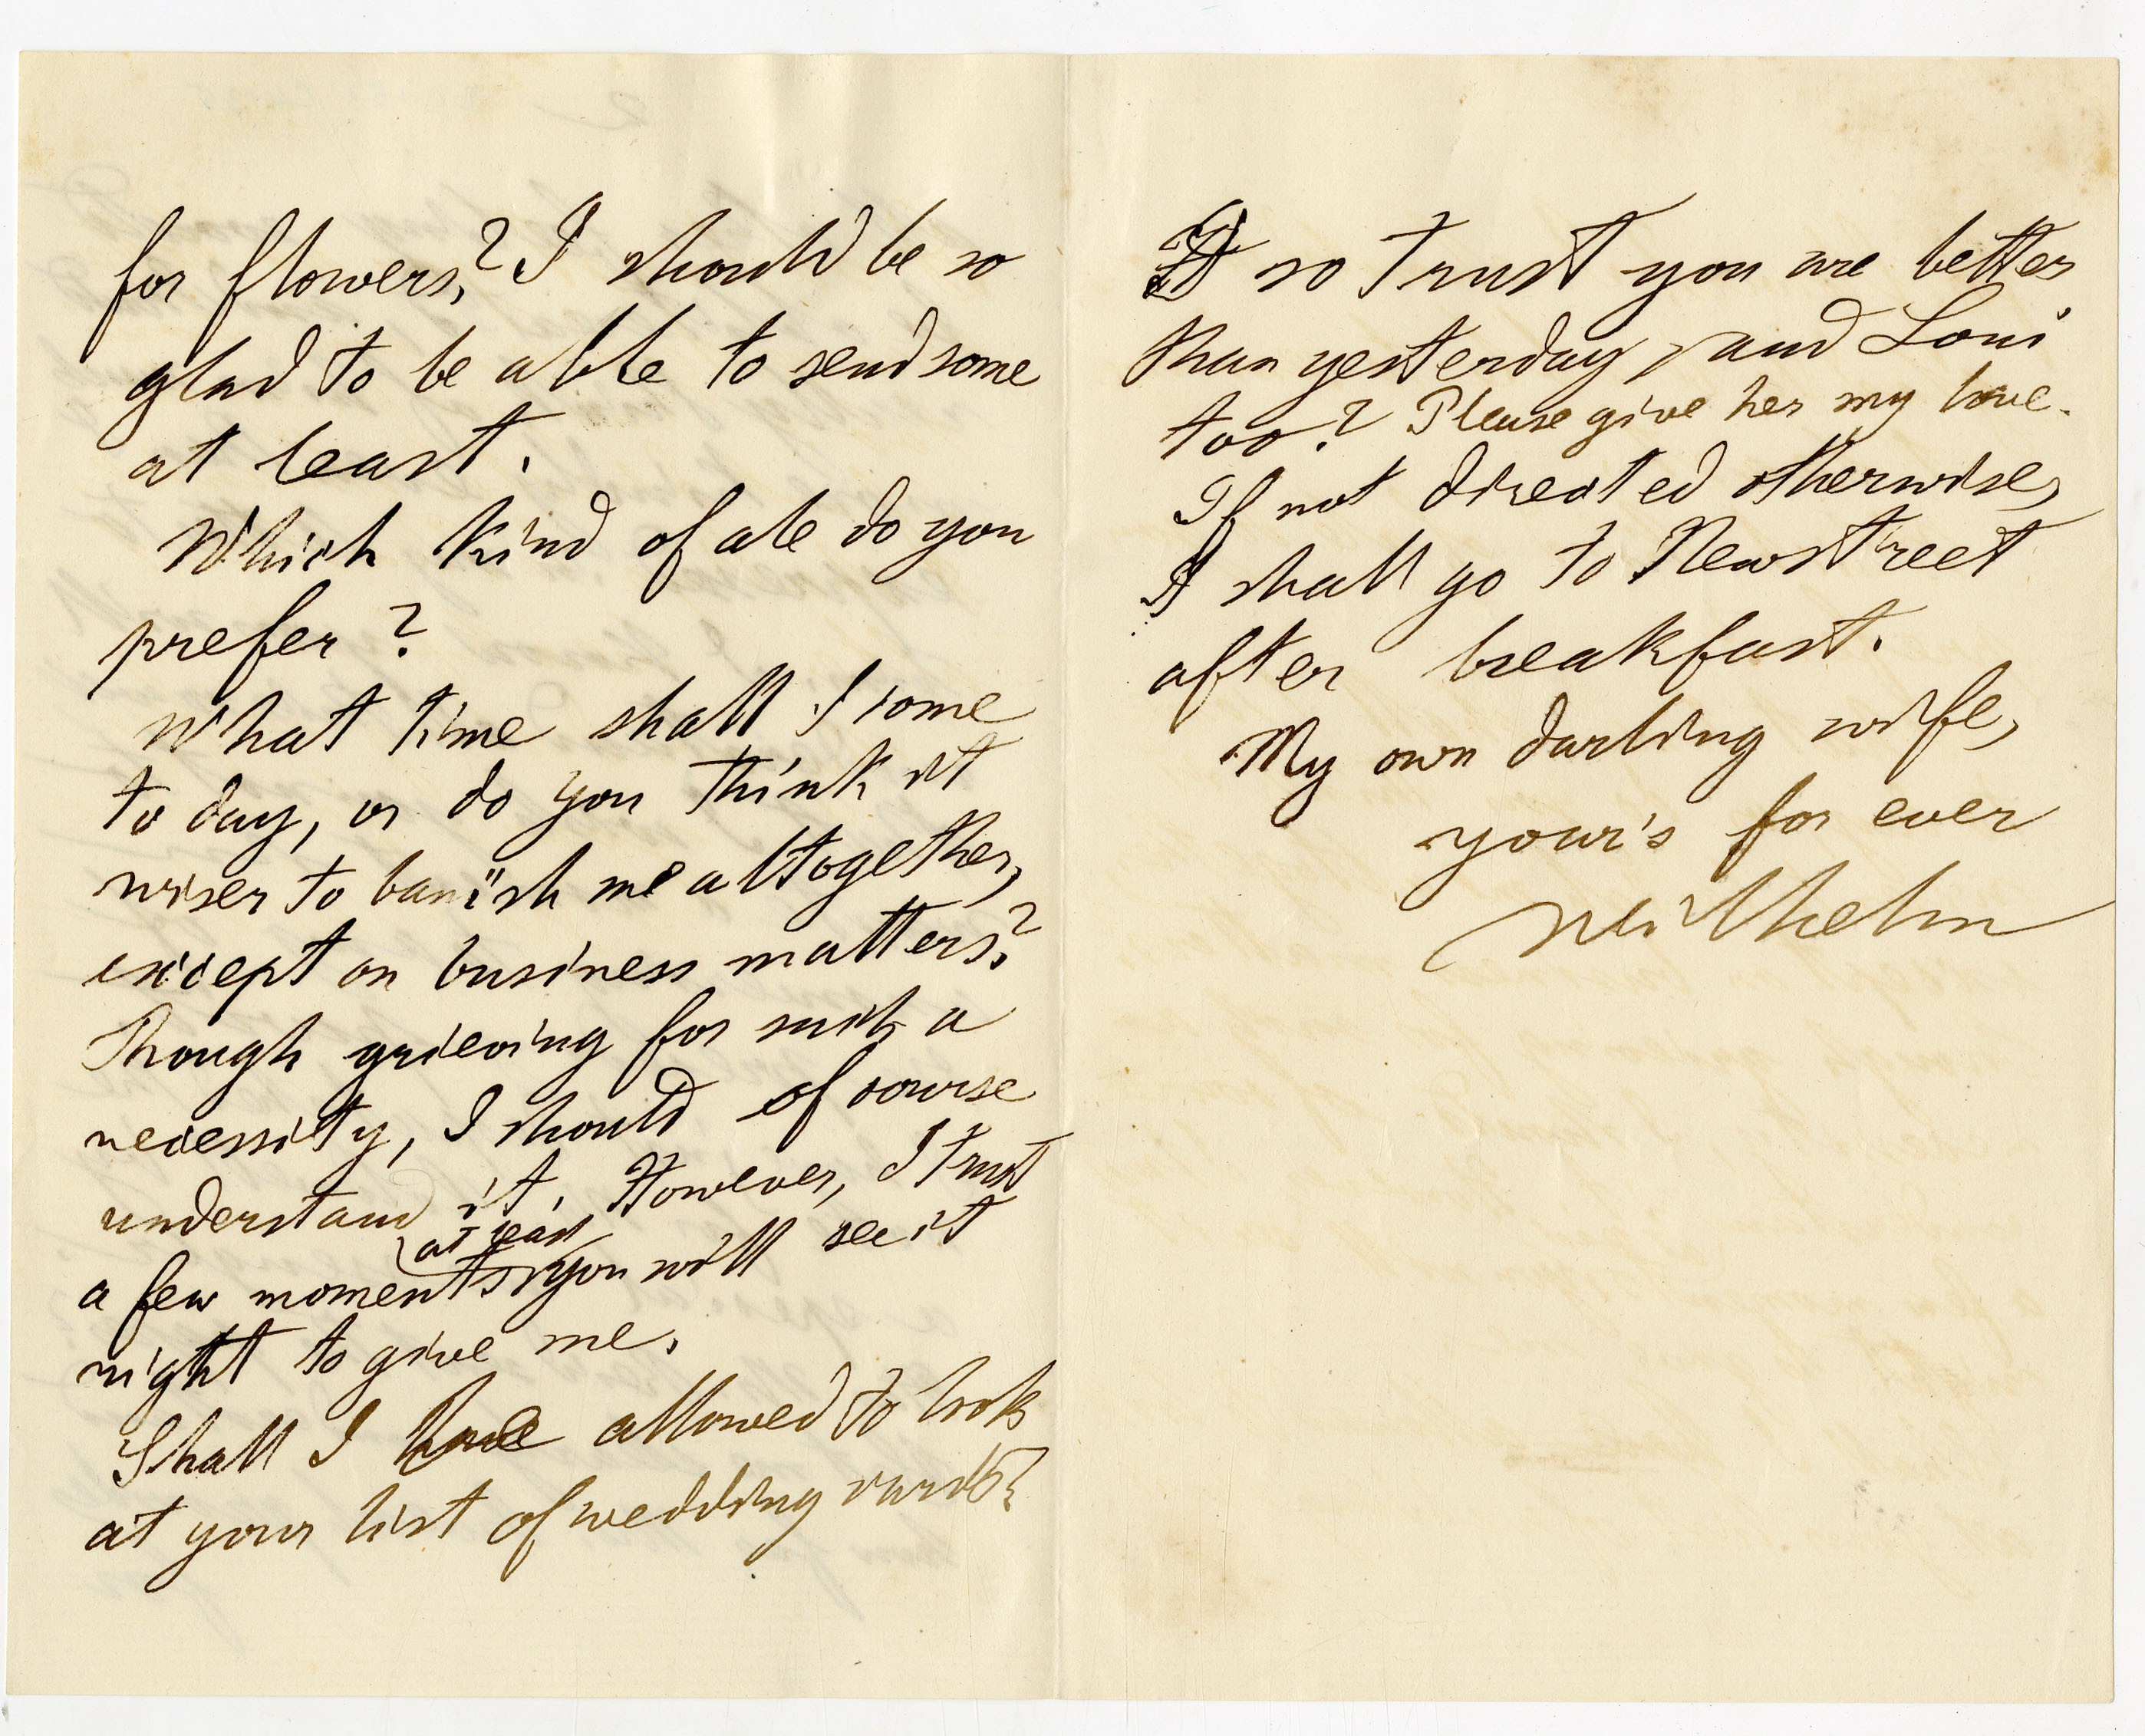 for flowers? I should be so
glad to be able to send some
at least.
Which kind of ale do you
prefer?
What time shall I come
to day, or do you think it
wiser to banish me altogether,
except on business matters?
Though grieving for such a
necessity, I should of course
understand it. However, I trust
at least
a few moments you will see it
right to give me.
Shall I be allowed to look
at your list of wedding cards?
I so trust you are better
than yesterday, and Loui
too? Please give her my love.
If not directed otherwise,
I shall go to Newstreet
after breakfast.
My own darling wife,
your's for ever
Wilhelm